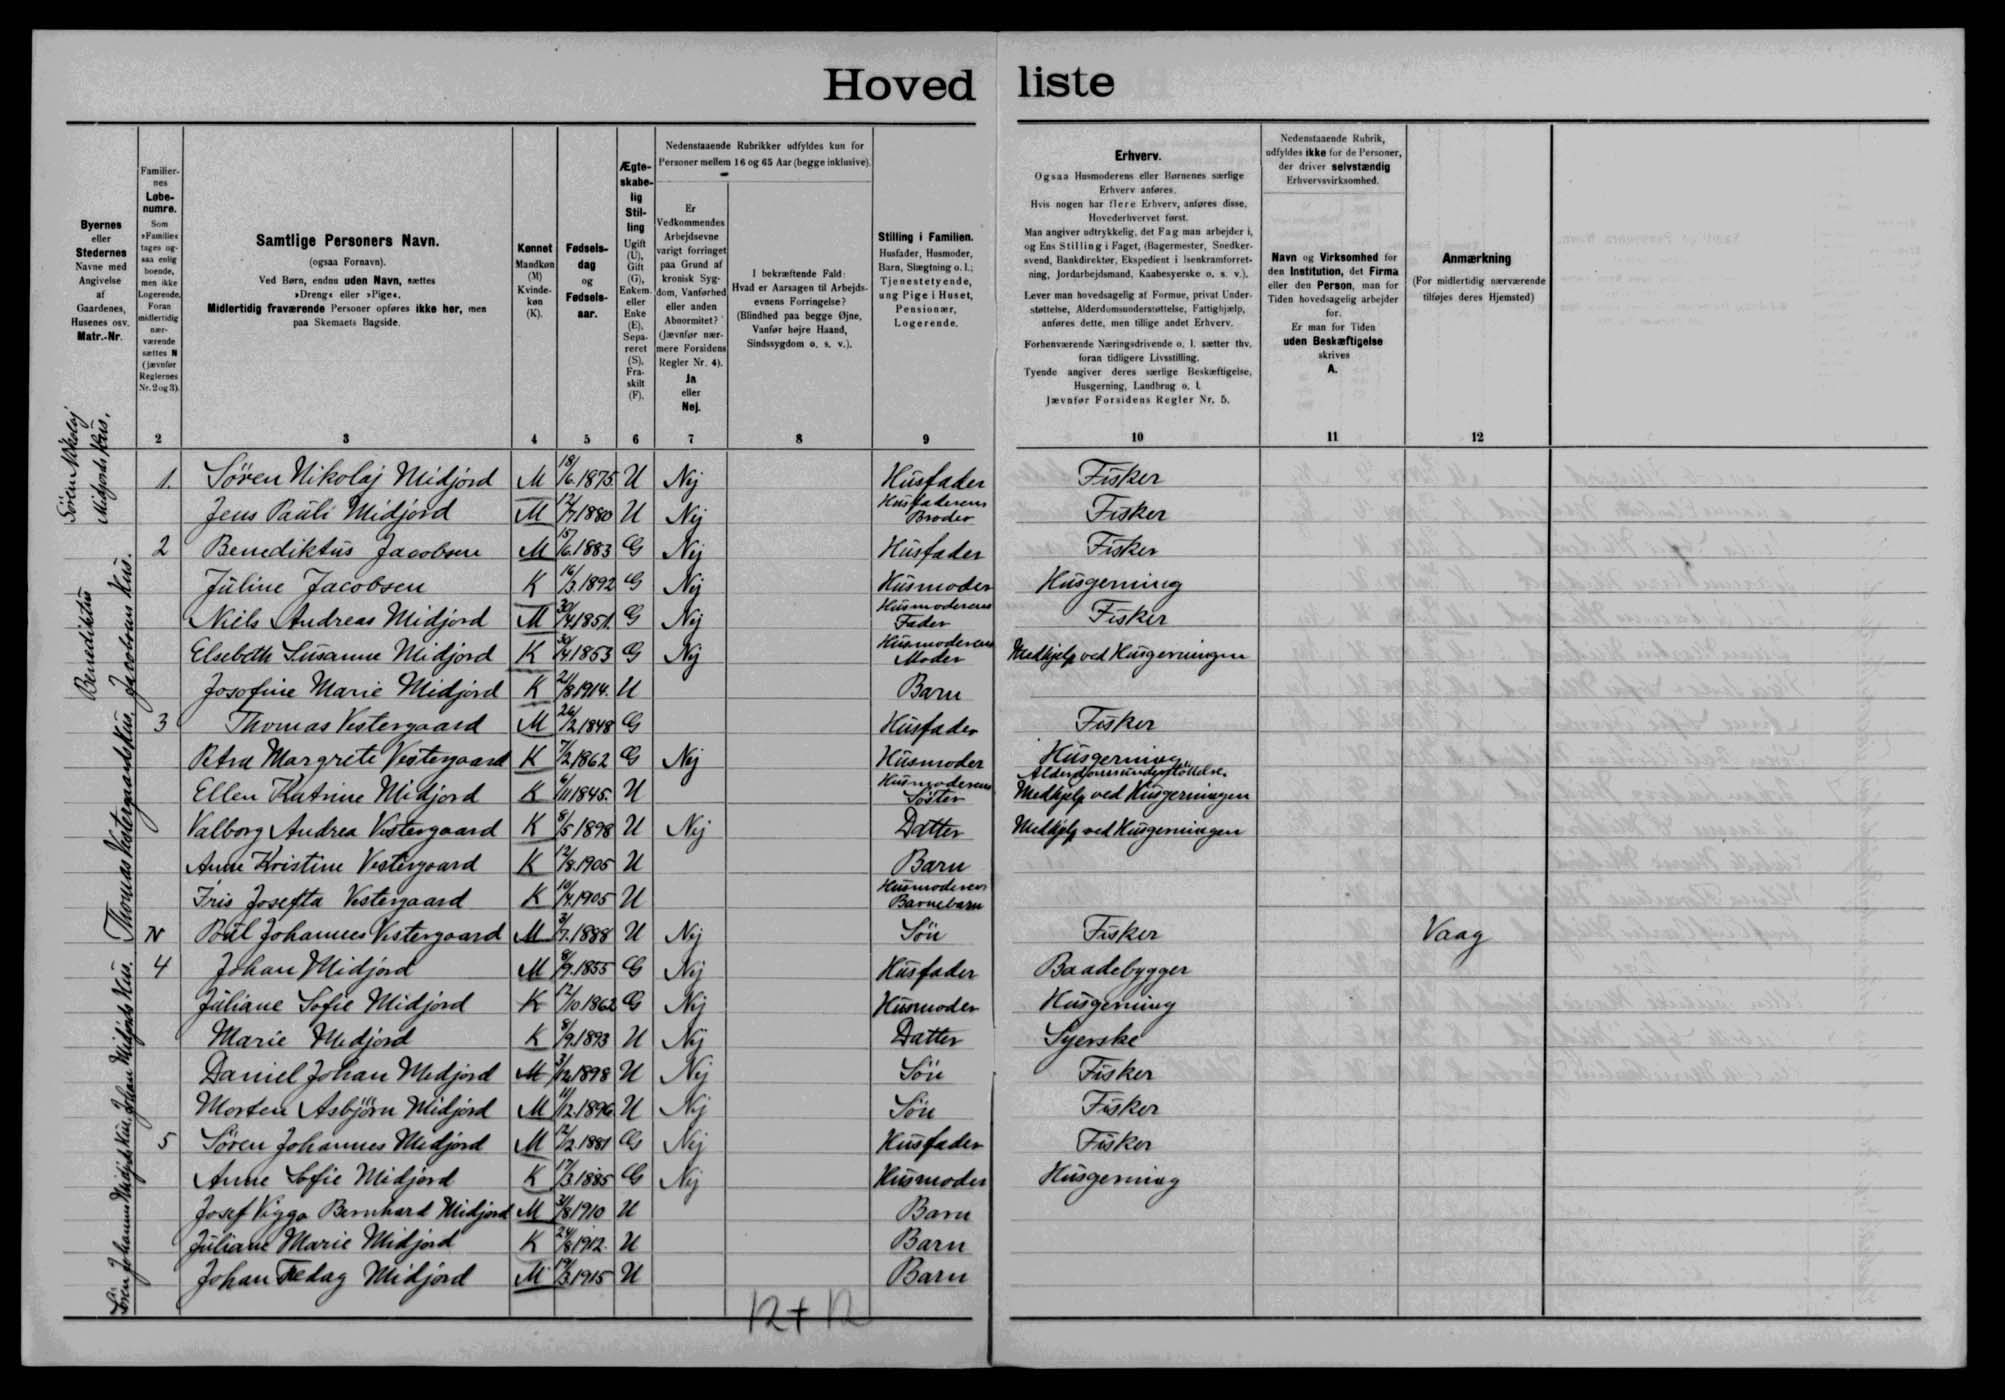 Hoved liste
Byernes
eller
Stedernes
Navne med
Angivelse
af
Gaardenes,
Husenes osv.
Matr.-Nr.
Familier-
nes
Løbe-
numre.
Som
»Familie«
tages og-
saa enlig
boende,
men ikke
Logerende.
Foran
midlertidig
nær-
værende
sættes N
(jævnfør
Reglernes
Nr. 2 og 3).
Samtlige Personers Navn.
(ogsaa Fornavn).
Ved Børn, endnu uden Navn, sættes
»Dreng« eller »Pige«.
Midlertidig fraværende Personer opføres ikke her, men
paa Skemaets Bagside.
Kønnet
Mandkøn
(M)
Kvinde-
køn
(K).
Fødsels-
dag
og
Fødsels-
aar.
Ægte-
skabe-
lig
Stil-
ling
Ugift
(U),
Gift
(G),
Enkem.
eller
Enke
(E),
Sepa-
reret
(S),
Fra-
skilt
(F).
Nedenstaaende Rubrikker udfyldes kun for
Personer mellem 16 og 65 Aar (begge inklusive).
Er
Vedkommendes
Arbejdsevne
varigt forringet
paa Grund af
kronisk Syg-
dom, Vanførhed
eller anden
Abnormitet?
(Jævnfør nær-
mere Forsidens
Regler Nr. 4).
Ja
eller
Nej.
I bekræftende Fald:
Hvad er Aarsagen til Arbejds-
evnens Forringelse?
(Blindhed paa begge Øjne,
Vanfør højre Haand,
Sindssygdom o. s. v.).
Stilling i Familien.
Husfader, Husmoder,
Barn, Slægtning o. l.;
Tjenestetyende,
ung Pige i Huset,
Pensionær,
Logerende.
Erhverv.
Ogsaa Husmoderens eller Børnenes særlige
Erhverv anføres.
Hvis nogen har flere Erhverv, anføres disse,
Hovederhvervet først.
Man angiver udtrykkelig, det Fag man arbejder i,
og Ens Stilling i Faget, (Bagermester, Snedker-
svend, Bankdirektør, Ekspedient i Isenkramforret-
ning, Jordarbejdsmand, Kaabesyerske o. s. v.).
Lever man hovedsagelig af Formue, privat Under-
støttelse, Alderdomsunderstøttelse, Fattighjælp,
anføres dette, men tillige andet Erhverv.
Forhenværende Næringsdrivende o. l. sætter thv.
foran tidligere Livsstilling.
Tyende angiver deres særlige Beskæftigelse,
Husgerning, Landbrug o. l.
Jævnfør Forsidens Regler Nr. 5.
Nedenstaaende Rubrik,
udfyldes ikke for de Personer,
der driver selvstændig
Erhvervsvirksomhed.
Navn og Virksomhed for
den Institution, det Firma
eller den Person, man for
Tiden hovedsagelig arbejder
for.
Er man for Tiden
uden Beskæftigelse
skrives
A.
Anmærkning
(For midlertidig nærværende
tilføjes deres Hjemsted)
2 3 4 5 6 7 8 9 10 11 12
Sören Nikolaj
Midjords Hus.
1. Sören Nikolaj Midjord M 18/6.1875 U Nej Husfader Fisker
Jens Pauli Midjord M 12/7 1880 U Nej Husfaderens Broder Fisker
Benediktus
Jacobsens Hus.
2 Benediktus Jacobsen M 15/6.1883 G Nej Husfader Fisker
Juline Jacobsen K 16/3.1892 G Nej Husmoder Husgerning
Niels Andreas Midjord M 30/4.1851. G Nej Husmoderens Fader Fisker
Elsebeth Susanne Midjord K 30/4.1853 G Nej Husmoderens Moder Medhjelp ved Husgerningen
Josofine Marie Midjord K 21/8.1914. U Barn
Thomas Vestergaards Hus.
3 Thomas Vestergaard M 26/2.1848 G Husfader Fisker
Petra Margrete Vestergaard K 7/2.1862 G Nej Husmoder Husgerning
Ellen Katrine Midjord K 6/11 1845. U Husmoderens Söster Alderdomsunderstöttelse. Medhjelp ved Husgerningen
Valborg Andrea Vestergaard K 8/5 1898 U Nej Datter Medhjelp ved Husgerningen
Anne Kristine Vestergaard K 12/8.1905 U Barn
Iris Josefta Vestergaard K 10/4.1905 U Husmoderens Barnebarn
N Poul Johannes Vestergaard M 3/7.1888 U Nej Sön Fisker Vaag
Johan Midjords Hus.
4 Johan Midjord M 8/9.1855 G Nej Husfader Baadebygger
Juliane Sofie Midjord K 12/10 1862 G Nej Husmoder Husgerning
Marie Midjord K 8/9.1893 U Nej Datter Syerske
Daniel Johan Midjord M 3/12.1898 U Nej Sön Fisker
Morten Asbjörn Midjord M 11/12.1896 U Nej Sön Fisker
Sören Johannes Midjords Hus,
5 Sören Johannes Midjord M 12/2.1881 G Nej Husfader Fisker
Anne Sofie Midjord K 17/3.1885 G Nej Husmoder Husgerning
Josef Viggo Bernhard Midjord M 31/8 1910 U Barn
Juliane Marie Midjord K 24/8 1912. U Barn
Johan Midjord M 19/3.1915 U Barn
12+12